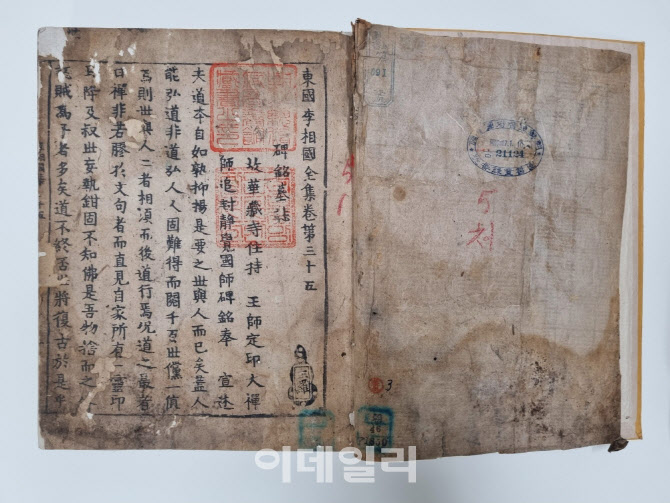 東國李相國全集卷第三十五
碑銘墓誌
故華藏寺住持 王師定印大禪
師追封靜覺國師碑銘奉 宣述
夫道本自如孰抑揚是要之世與人而已矣盖人
能弘道非道弘人人固難得而閱千百世僅一
焉則世與人二者相須而後道行焉况道之最者
曰禪非若膠於文句者而直見自家所有一靈印
及叔世妄執鉗固不知佛是吾物捨而之
賊爲子者多矣道不終否必將復古於是乎
21124
5
3
이데일리